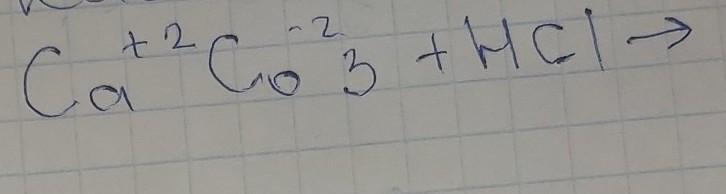 Ca⁺²Co₃⁻² + HCl →